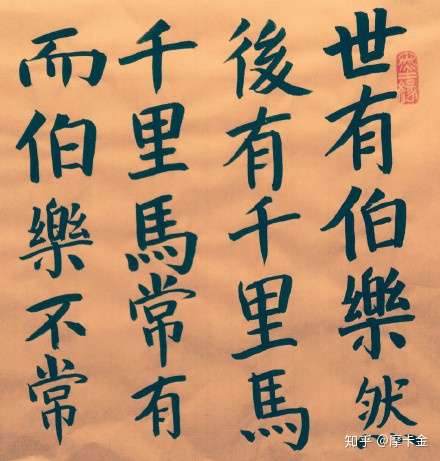 世有伯樂然
後有千里馬
千里馬常有
而伯樂不常
知乎 @摩卡金